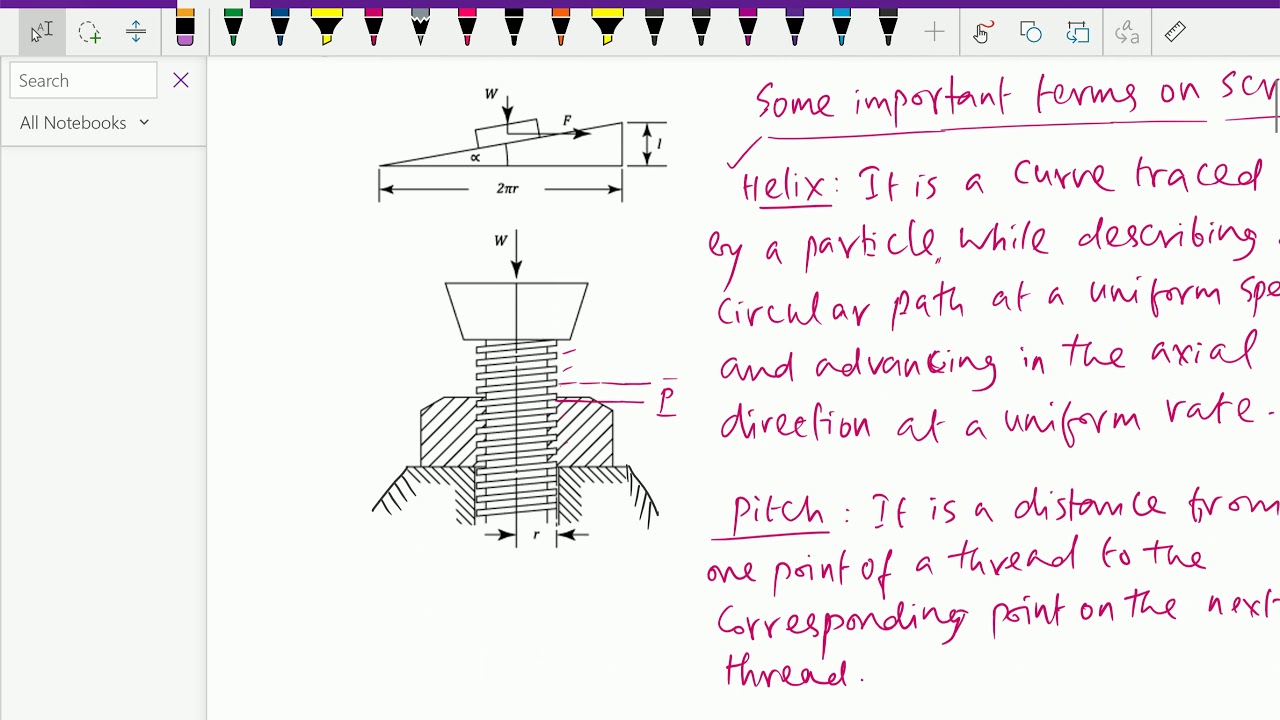 Search
All Notebooks
W
F
α
l
2πr
W
P
r
Some important terms on scr
Helix: It is a curve traced
by a particle, while describing
circular path at a uniform spe
and advancing in the axial
direction at a uniform rate.
Pitch: It is a distance from
one point of a thread to the
corresponding point on the next
thread.